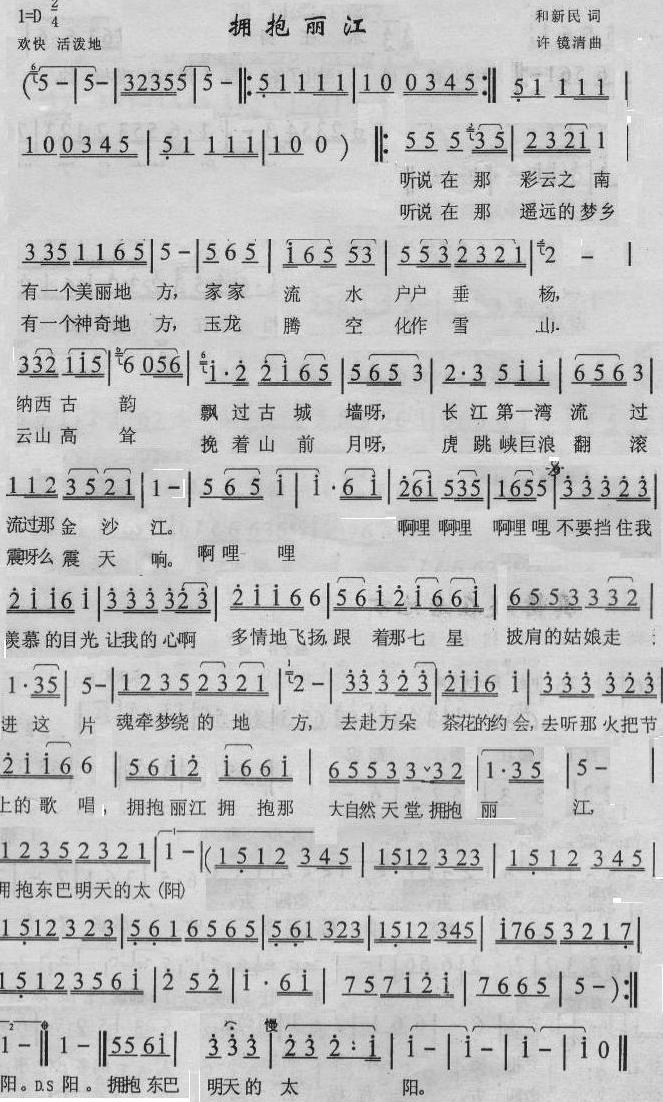 1=D 2/4 拥抱丽江 和新民 词
欢快 活泼地 许镜清曲
(5 - | 5 - | 32355 | 5 - ‖: 5 1 1 1 1 | 1 0 0 3 4 5 :‖ 5 1 1 1 1 |
1 0 0 3 4 5 | 5 1 1 1 1 | 1 0 0 ) ‖: 5 5 5 3 5 | 2 3 2 1 1 |
听说 在 那 彩云之 南
听说 在 那 遥远的 梦乡
3 3 5 1 1 6 5 | 5 - | 5 6 5 | i 6 5 5 3 | 5 5 3 2 3 2 1 | 2 - |
有一个美丽地 方, 家家 流 水 户户 垂 杨,
有一个神奇地 方, 玉龙 腾 空 化作 雪 山.
3 3 2 i i 5 | 6 0 5 6 | i · 2 2 i 6 5 | 5 6 5 3 | 2 · 3 5 i i | 6 5 6 3 |
纳西古 韵 飘 过 古 城 墙呀, 长 江 第一湾 流 过
云山高 耸 挽 着 山 前 月呀, 虎 跳 峡巨浪 翻 滚
1 1 2 3 5 2 1 | 1 - | 5 6 5 i | i · 6 i | 2 6 i 5 3 5 | 1 6 5 5 | 3 3 3 2 3 |
流过那 金 沙 江。 啊哩 啊哩 啊哩 哩, 不要挡 住我
震呀么 震 天 响。 啊 哩 哩
2 i i 6 i | 3 3 3 3 2 3 | 2 i i 6 6 | 5 6 i 2 i 6 6 i | 6 5 5 3 3 3 2 |
羡慕 的目光, 让我的 心啊 多情地飞扬, 跟 着那七 星 披肩的姑娘 走
1 · 3 5 | 5 - | 1 2 3 5 2 3 2 1 | 2 - | 3 3 3 2 3 | 2 i i 6 i | 3 3 3 3 2 3 |
进 这 片 魂牵梦绕 的 地 方, 去赴万朵 茶花的约 会, 去听那 火把节
2 i i 6 6 | 5 6 i 2 i 6 6 i | 6 5 5 3 3 ˇ 3 2 | 1 · 3 5 | 5 - |
上的 歌 唱, 拥抱 丽江 拥 抱那 大自然 天 堂, 拥抱 丽 江,
1 2 3 5 2 3 2 1 | 1 - | ( 1 5 1 2 3 4 5 | 1 5 1 2 3 2 3 | 1 5 1 2 3 4 5 |
拥抱东巴明天的太 (阳)
1 5 1 2 3 2 3 | 5 6 1 6 5 6 5 | 5 6 1 3 2 3 | 1 5 1 2 3 4 5 | i 7 6 5 3 2 1 7 |
1 5 1 2 3 5 6 i | 2 5 2 | i · 6 i | 7 5 7 i 2 i | 7 6 6 5 | 5 - ) :‖
1 - ‖ 1 - ‖ 5 5 6 i | 3 3 3 慢 | 2 3 2 · i | i - | i - | i - | i 0 ‖
阳。 D.S 阳 。 拥抱 东巴 明天的 太 阳。